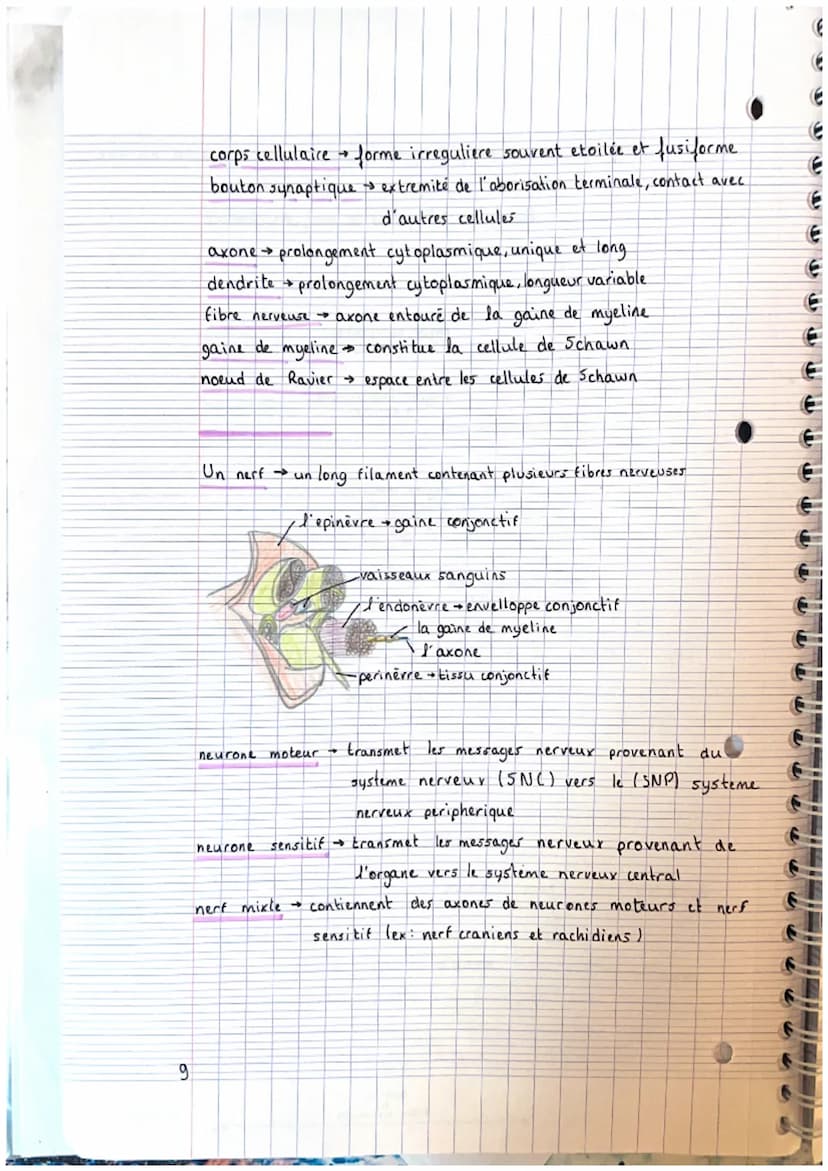 corps cellulaire → forme irreguliere souvent etoilée et fusiforme
bouton synaptique → extremité de l'aborisation terminale, contact avec
d'autres cellules
axone → prolongement cytoplasmique, unique et long
dendrite → prolongement cytoplasmique, longueur variable
fibre nerveuse → axone entouré de la gaine de myeline
gaine de myeline → constitue la cellule de Schawn
noeud de Ravier → espace entre les cellules de Schawn
Un nerf → un long filament contenant plusieurs fibres nerveuses
l'epinèvre → gaine conjonctif
vaisseaux sanguins
l'endonèvre → envelloppe conjonctif
la gaine de myeline
l'axone
perinèvre → tissu conjonctif
neurone moteur → transmet les messages nerveux provenant du
systeme nerveux (SNC) vers le (SNP) systeme
nerveux peripherique
neurone sensitif → transmet les messages nerveux provenant de
l'organe vers le système nerveux central
nerf mixte → contiennent des axones de neurones moteurs et nerf
sensitif (ex: nerf craniens et rachidiens)
9